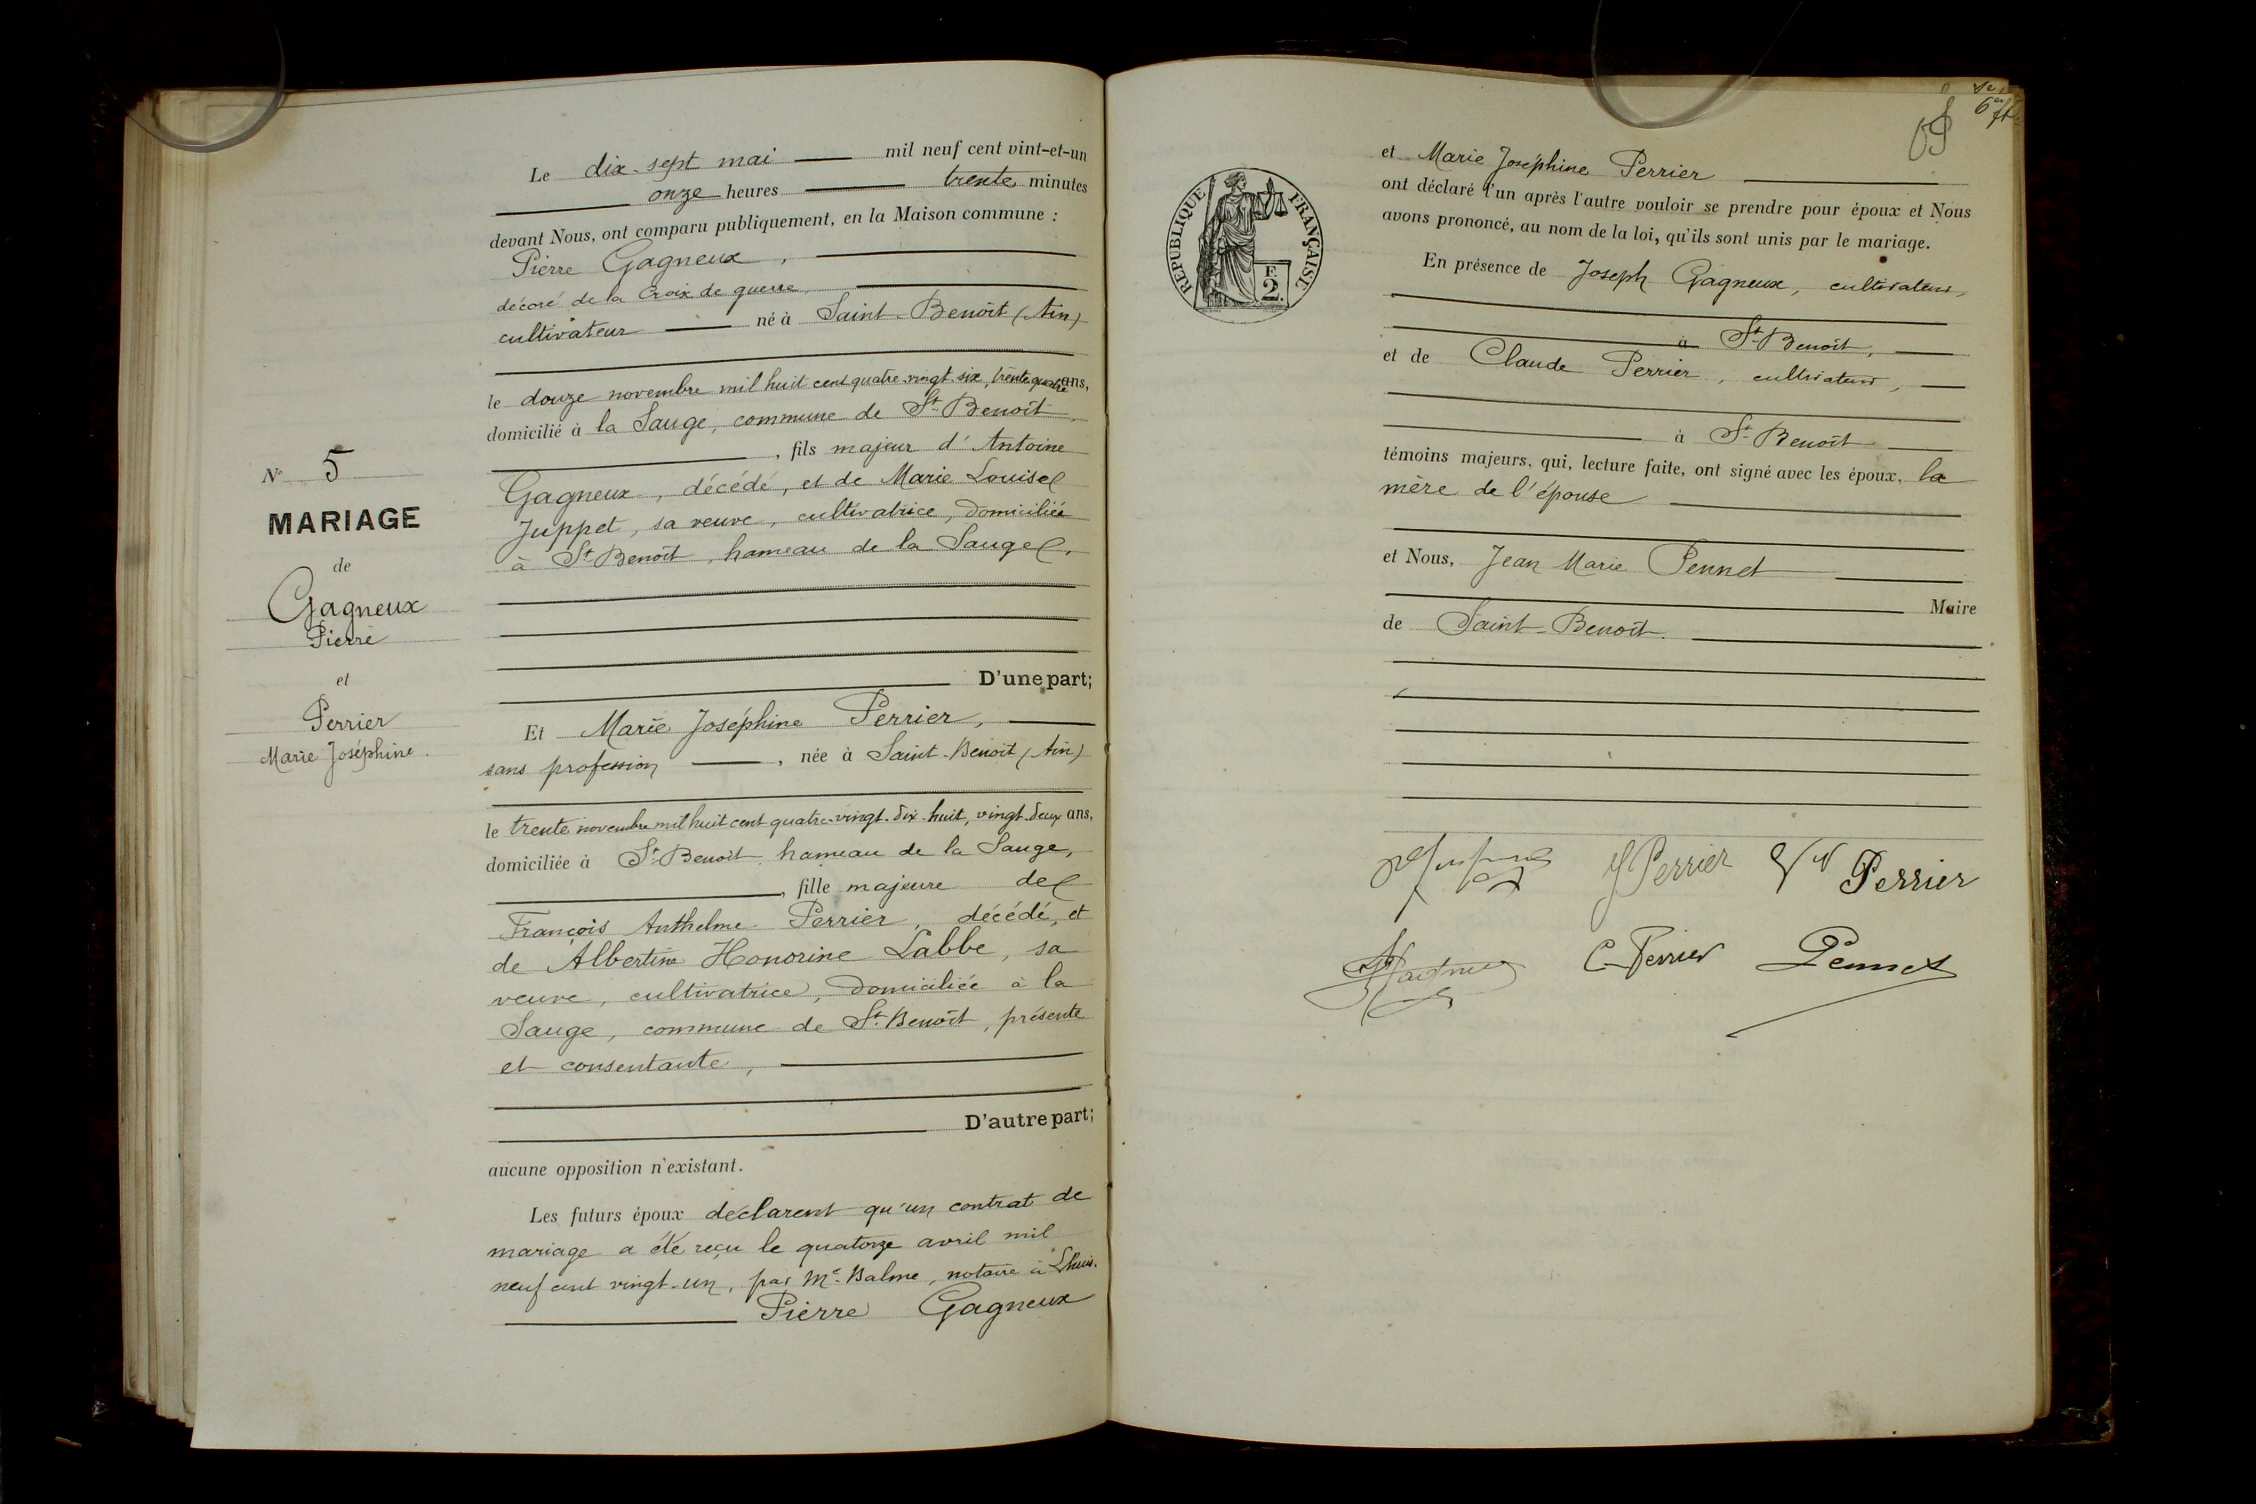 N° 5
MARIAGE
de
Gagneux
Pierre
et
Perrier
Marie Joséphine.
Le dix-sept mai mil neuf cent vint-et-un
onze heures trente minutes
devant Nous, ont comparu publiquement, en la Maison commune :
Pierre Gagneux,
décoré de la Croix de guerre
cultivateur né à Saint-Benoît (Ain)
le douze novembre mil huit cent quatre-vingt-six, trente quatre ans,
domicilié à la Sauge, commune de St-Benoît,
, fils majeur d'Antoine
Gagneux, décédé, et de Marie Louise
Juppet, sa veuve, cultivatrice, domiciliée
à St-Benoît, hameau de la Sauge.
D'une part;
Et Marie Joséphine Perrier,
sans profession , née à Saint-Benoît (Ain)
le trente novembre mil huit cent quatre-vingt-dix-huit, vingt-deux ans,
domiciliée à St-Benoît, hameau de la Sauge,
, fille majeure de
François Anthelme Perrier, décédé, et
de Albertine Honorine Labbe, sa
veuve, cultivatrice, domiciliée à la
Sauge, commune de St-Benoît, présente
et consentante,
D'autre part;
aucune opposition n'existant.
Les futurs époux déclarent qu'un contrat de
mariage a été reçu le quatorze avril mil
neuf cent vingt-un, par Me Balme, notaire à Lhuis.
Pierre Gagneux
RÉPUBLIQUE FRANÇAISE
F.
2.
et Marie Joséphine Perrier
ont déclaré l'un après l'autre vouloir se prendre pour époux et Nous
avons prononcé, au nom de la loi, qu'ils sont unis par le mariage.
En présence de Joseph Gagneux, cultivateur,
à St-Benoît,
et de Claude Perrier, cultivateur,
à St-Benoît
témoins majeurs, qui, lecture faite, ont signé avec les époux, la
mère de l'épouse
et Nous, Jean Marie Pennet
Maire
de Saint-Benoît.
Perrier
Perrier
C Perrier
Pennet